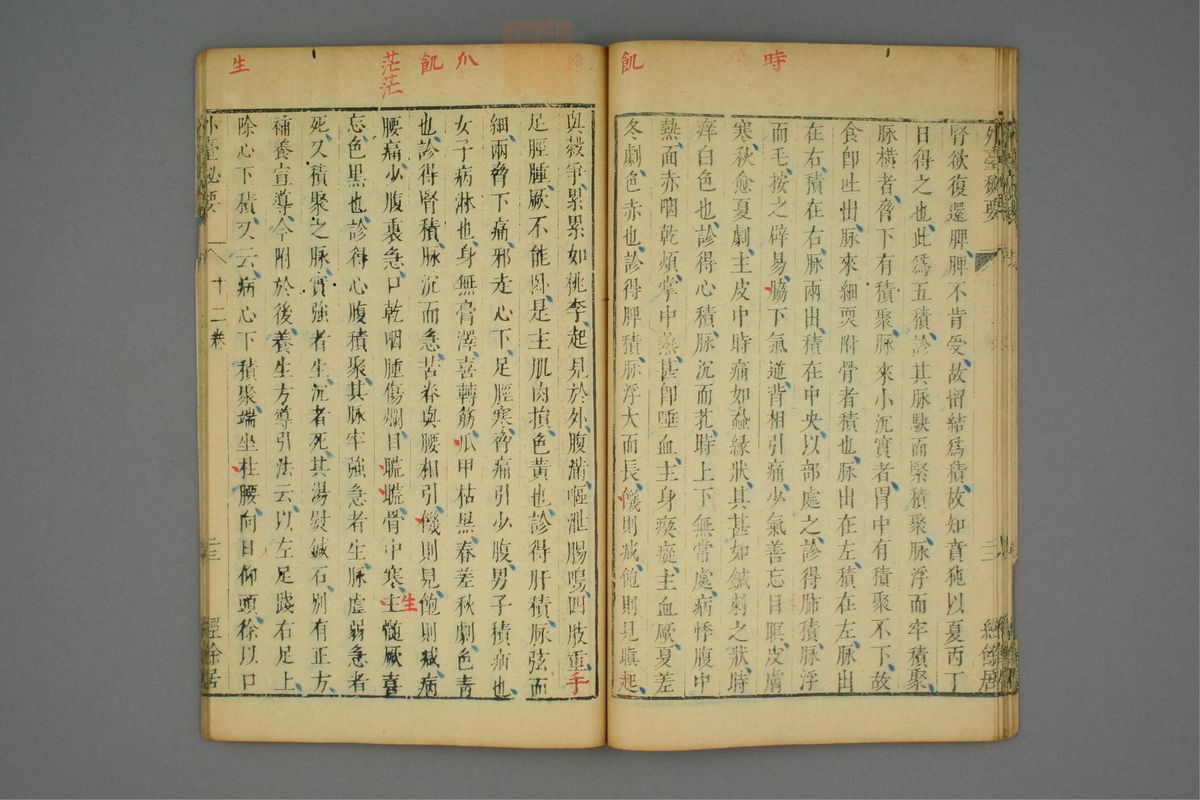 飢 時
外臺祕要
三
經餘居
腎欲復還脾脾不肯受故留結爲積故知賁㹠以夏丙丁
日得之也此爲五積診其脉駃而緊積聚脉浮而牢積聚
脉橫者脅下有積聚脉來小沉實者胃中有積聚不下故
食卽吐出脉來細耎附骨者積也脉出在左積在左脉出
在右積在右脉兩出積在中央以部處之診得肺積脉浮
而毛按之辟易脇下氣逆背相引痛少氣善忘目瞑皮膚
寒秋愈夏劇主皮中時痛如蝨緣狀其甚如鍼刺之狀時
痒白色也診得心積脉沉而芤時上下無常處病悸腹中
熱面赤咽乾煩掌中熱甚卽唾血主身瘈瘲主血厥夏差
冬劇色赤也診得脾積脉浮大而長饑則減飽則見瞋起
生 茫茫 飢 爪
與穀爭累累如桃李起見於外腹滿嘔泄腸鳴四肢重手
足脛腫厥不能卧是主肌肉損色黃也診得肝積脉弦而
細兩脅下痛邪走心下足脛寒脅痛引少腹男子積疝也
女子病淋也身無膏澤喜轉筋瓜甲枯黑春差秋劇色青
也診得腎積脉沉而急苦脊與腰相引饑則見飽則減病
腰痛少腹裏急口乾咽腫傷爛目䀮䀮骨中寒主髓厥喜
生
忘色黑也診得心腹積聚其脉牢強急者生脉虛弱急者
死又積聚之脉實強者生沉者死其湯熨鍼石別有正方
補養宣導今附於後養生方導引法云以左足踐右足上
除心下積又云病心下積聚端坐柱腰向日仰頭徐以口
外臺祕要
十二卷
三
經餘居